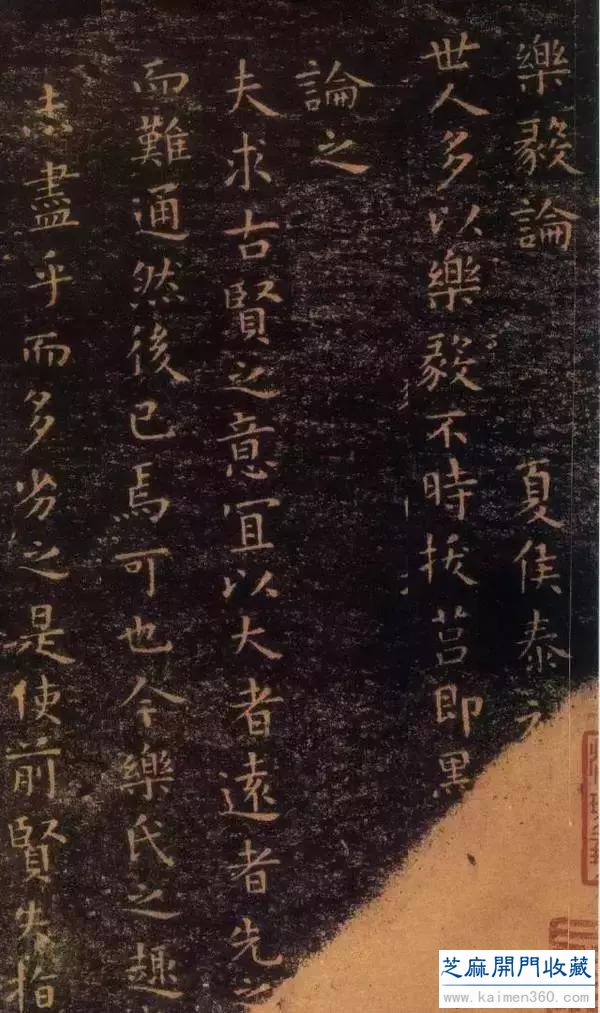 樂毅論 夏侯泰
世人多以樂毅不時拔莒即墨
論之
夫求古賢之意宜以大者遠者先之
而難通然後已焉可也今樂氏之趣
未盡乎而多劣之是使前賢失指
芝麻開門收藏
www.kaimen360.com